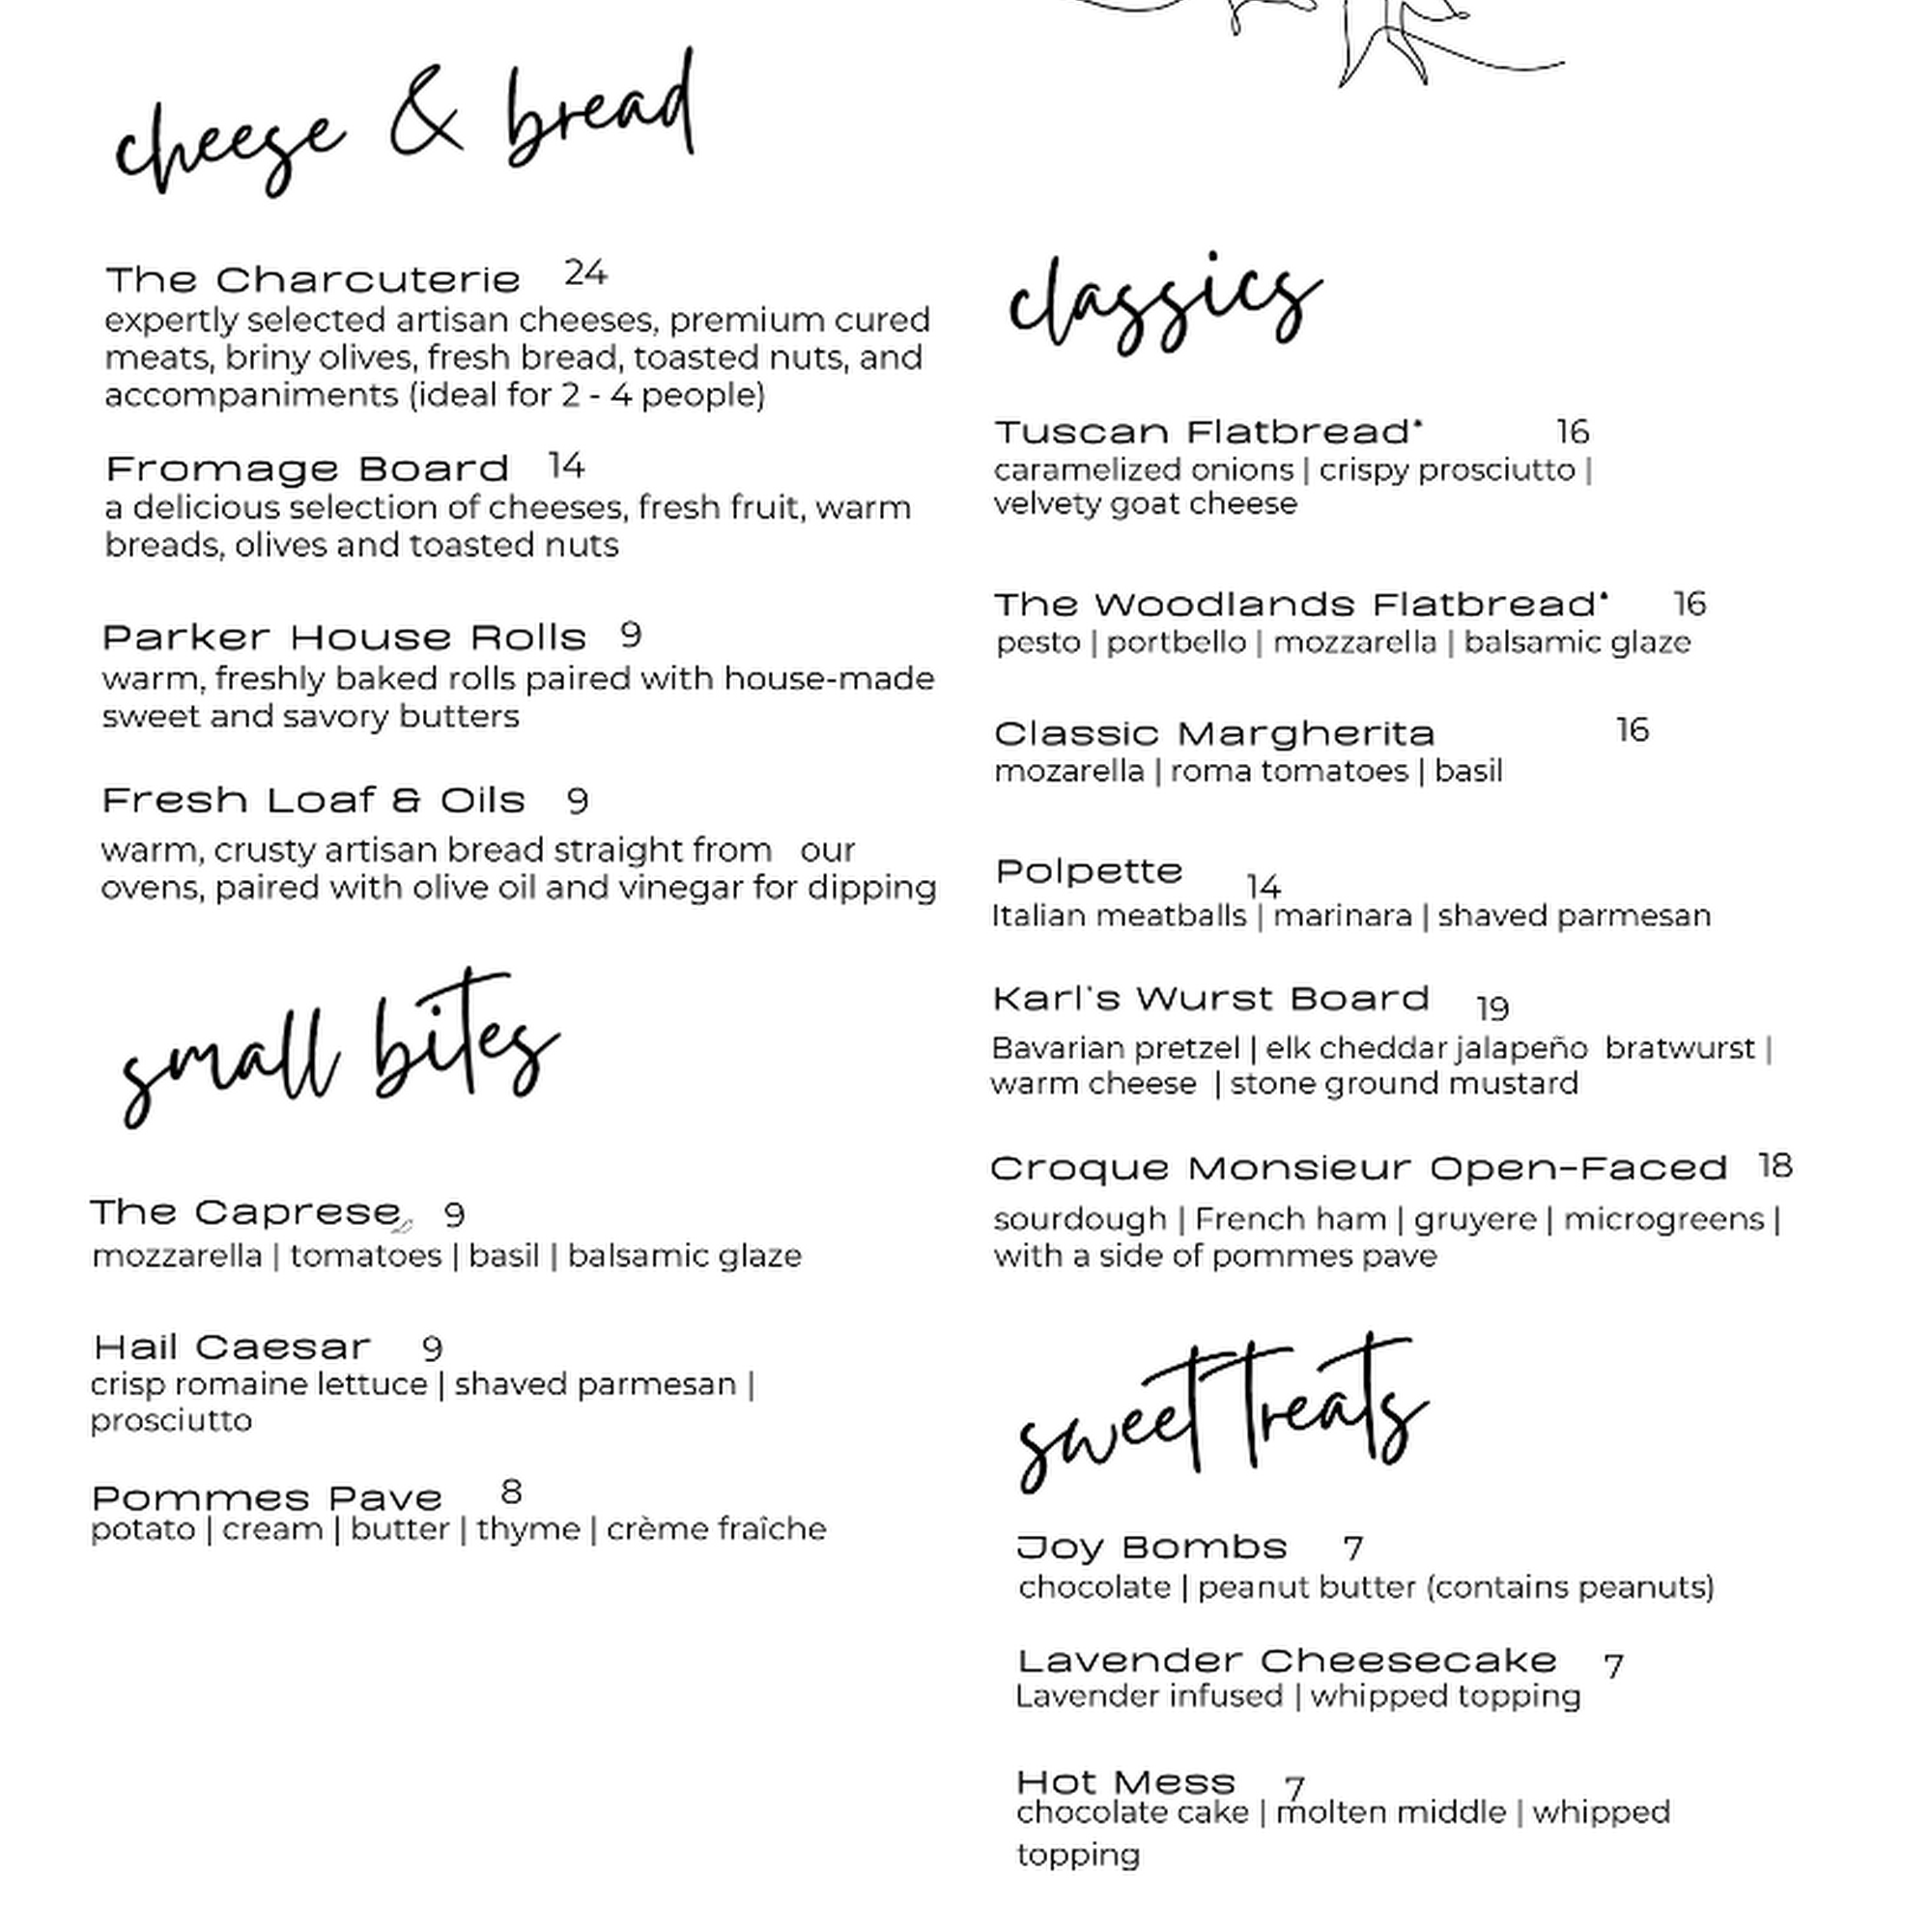 cheese & bread
The Charcuterie 24
expertly selected artisan cheeses, premium cured
meats, briny olives, fresh bread, toasted nuts, and
accompaniments (ideal for 2 - 4 people)
Fromage Board 14
a delicious selection of cheeses, fresh fruit, warm
breads, olives and toasted nuts
Parker House Rolls 9
warm, freshly baked rolls paired with house-made
sweet and savory butters
Fresh Loaf & Oils 9
warm, crusty artisan bread straight from our
ovens, paired with olive oil and vinegar for dipping
small bites
The Caprese 9
mozzarella | tomatoes | basil | balsamic glaze
Hail Caesar 9
crisp romaine lettuce | shaved parmesan |
prosciutto
Pommes Pave 8
potato | cream | butter | thyme | crème fraîche
classics
Tuscan Flatbread* 16
caramelized onions | crispy prosciutto |
velvety goat cheese
The Woodlands Flatbread* 16
pesto | portbello | mozzarella | balsamic glaze
Classic Margherita 16
mozarella | roma tomatoes | basil
Polpette 14
Italian meatballs | marinara | shaved parmesan
Karl's Wurst Board 19
Bavarian pretzel | elk cheddar jalapeño bratwurst |
warm cheese | stone ground mustard
Croque Monsieur Open-Faced 18
sourdough | French ham | gruyere | microgreens |
with a side of pommes pave
sweet treats
Joy Bombs 7
chocolate | peanut butter (contains peanuts)
Lavender Cheesecake 7
Lavender infused | whipped topping
Hot Mess 7
chocolate cake | molten middle | whipped
topping